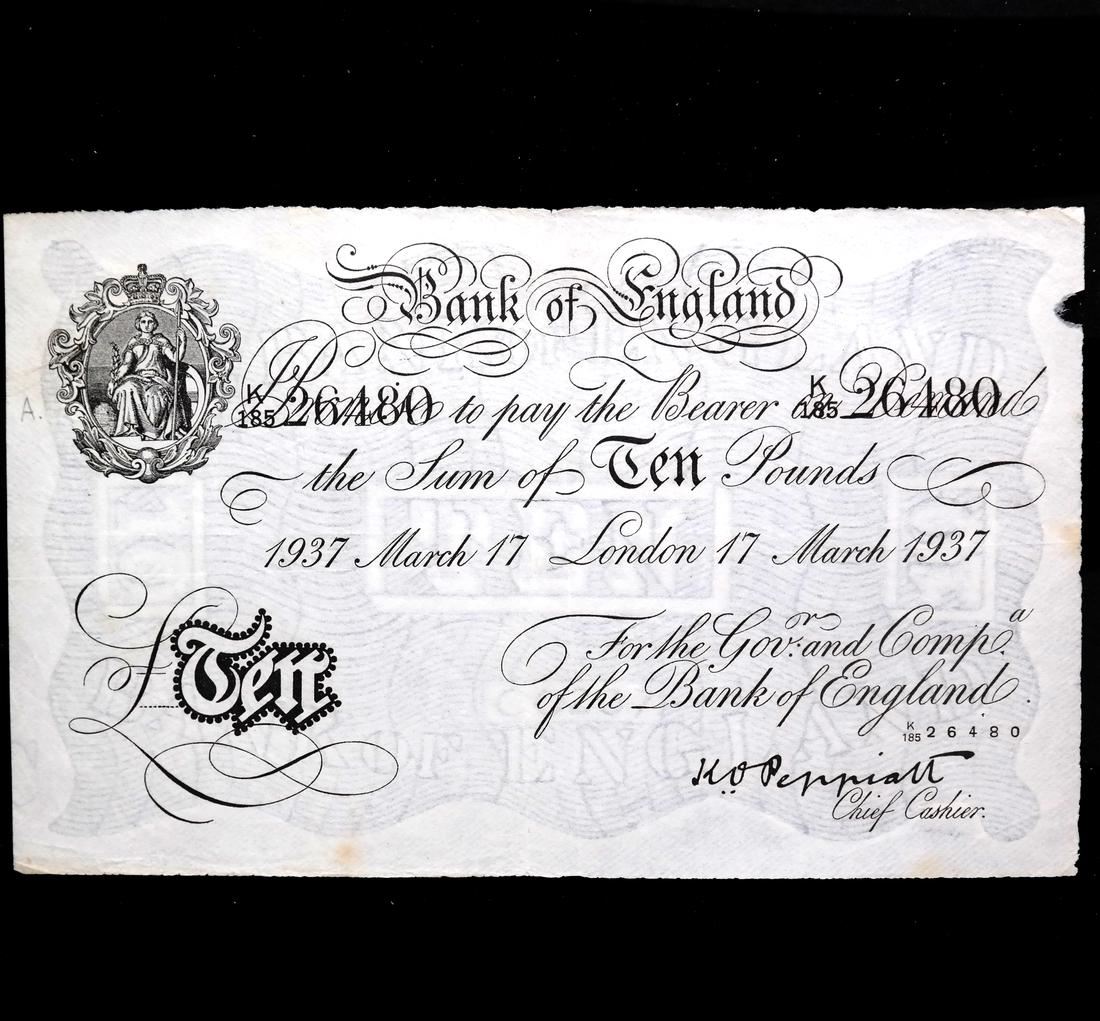 Bank of England
A.
K
185 26480 to pay the Bearer on Demand K
185 26480
the Sum of Ten Pounds
1937 March 17 London 17 March 1937
£Ten
For the Govr. and Compa.
of the Bank of England.
K
185 26480
K.O. Peppiatt
Chief Cashier.